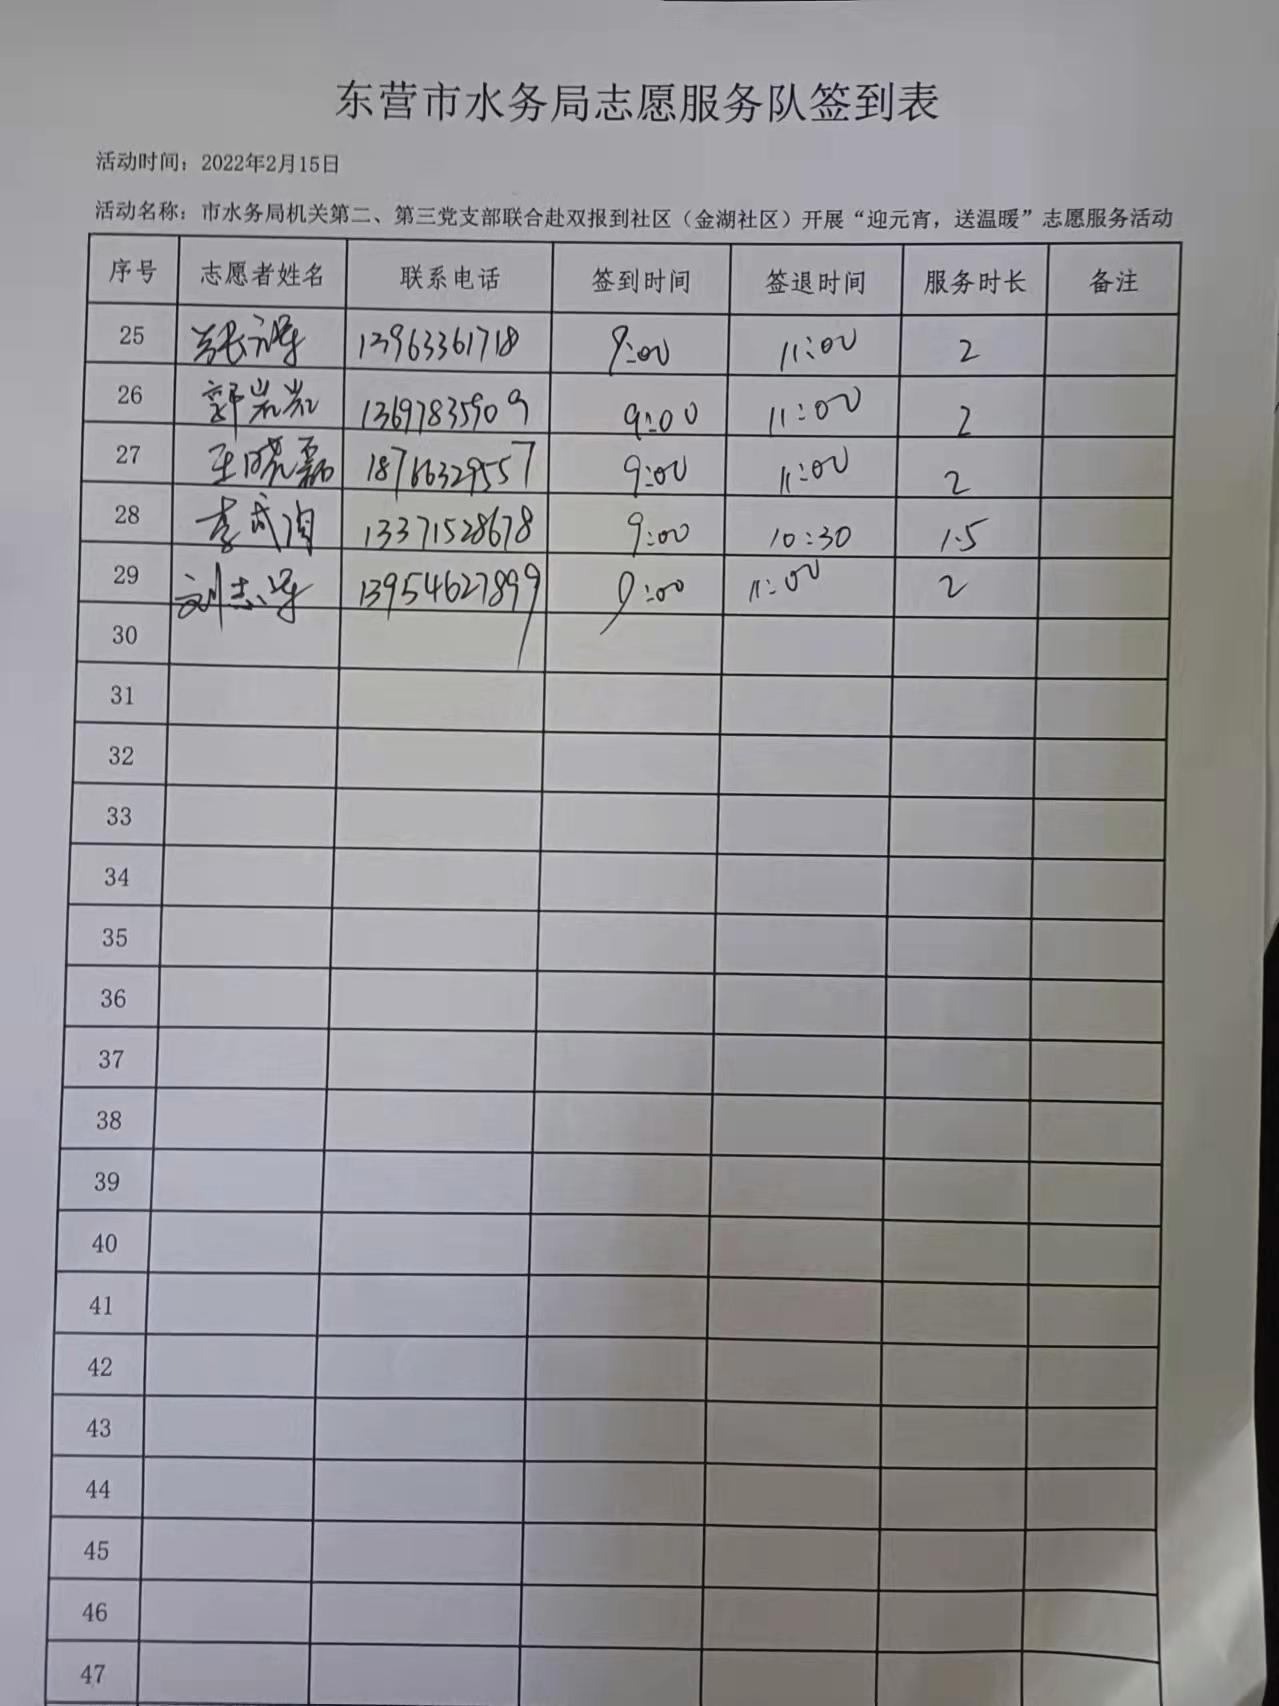 东营市水务局志愿服务队签到表
活动时间：2022年2月15日
活动名称：市水务局机关第二、第三党支部联合赴双报到社区（金湖社区）开展“迎元宵，送温暖”志愿服务活动
序号 志愿者姓名 联系电话 签到时间 签退时间 服务时长 备注
25 13963361718 9:00 11:00 2
26 郭岩岩 13697835909 9:00 11:00 2
27 王晓磊 18766329557 9:00 11:00 2
28 李武 13371528678 9:00 10:30 1.5
29 刘志军 13954627899 9:00 11:00 2
30
31
32
33
34
35
36
37
38
39
40
41
42
43
44
45
46
47